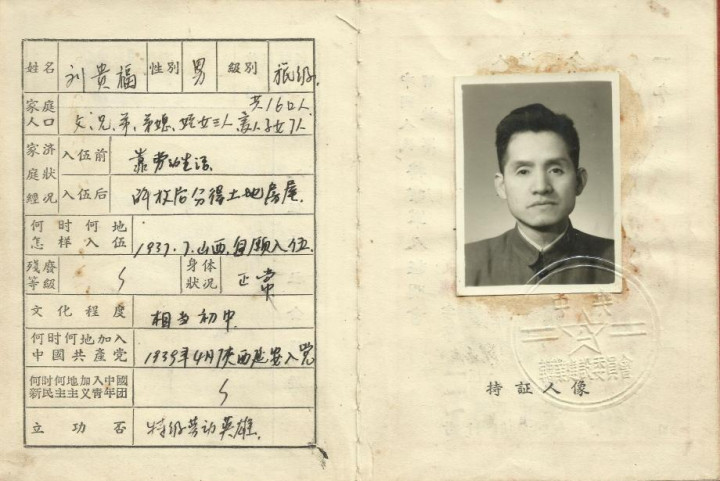 姓名 刘贵福 性別 男 級別 班级.
家庭人口 共16口人
父、兄、弟、弟媳、侄女三人,妻人子女7人
家庭經济狀況 入伍前 靠劳动生活.
入伍后 解放后分得土地房屋.
何时何地怎样入伍 1937.7.山西.自願入伍.
残廢等級 身体狀况 正常
文化程度 相当初中.
何时何地加入中國共產党 1939年4月陕西延安入党
何时何地加入中國新民主主义青年团
立功否 特级劳动英雄.
持証人像
中共
委員會